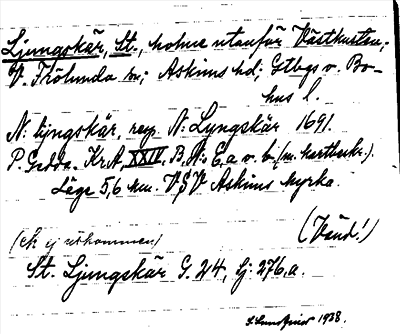 Ljungskär, St., holme utanför Västkusten;
V. Frölunda sn; Askims hd; Gtbgs o. Bo-
hus l.
N: ljngskär, resp. N: Lyngskär 1691.
P. Gedda. KrA, XXIV, B, N: 6, a o. b. (m. kartbeskr.).
Läge 5,6 km. V§V Askims kyrka.
(Vänd!)
(ek ej utkommen)
St. Ljungskär G. 24, lj: 276, a.
1938.